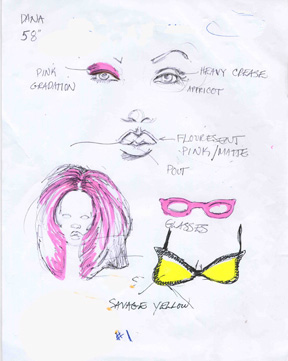 DANA
5'8"
PINK
GRADATION
HEAVY CREASE
APPRICOT
FLOURESENT
PINK/MATTE
POUT
GLASSES
SAVAGE YELLOW
#1